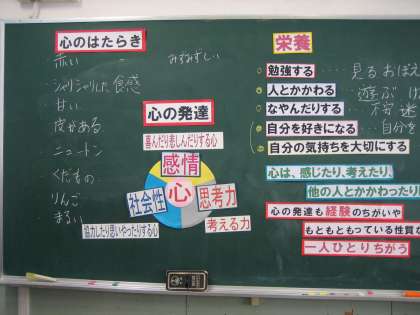 心のはたらき
赤い
みずみずしい
シャリシャリした食感
甘い
皮がある
ニュートン
くだもの
りんご
まるい
心の発達
喜んだり悲しんだりする心
感情
心
社会性
思考力
協力したり思いやったりする心
考える力
栄養
勉強する……見るおぼえ
人とかかわる……遊ぶけ
なやんだりする……不安迷
自分を好きになる……自分
自分の気持ちを大切にする
心は、感じたり、考えたり、
他の人とかかわったり
心の発達も経験のちがいや
もともともっている性質な
一人ひとりちがう